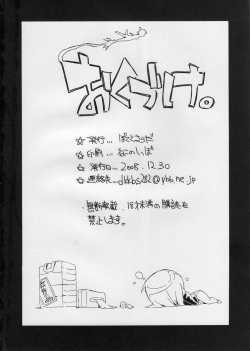 おくづけ。
☆ 発行…
☆ 印刷… ねこのしっぽ
☆ 発行日… 2008.12.30
☆ 連絡先…
・無断転載 18才未満の購読を
禁止します。